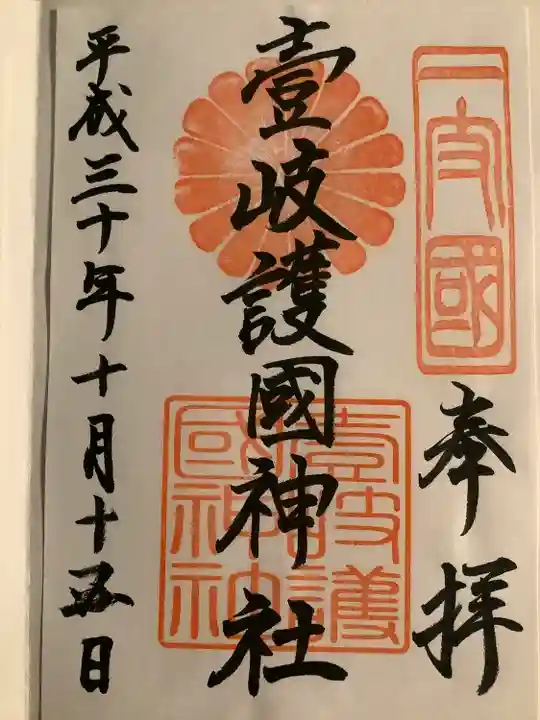 一支國
奉拝
壹岐護國神社
壹岐護國神社
平成三十年十月十五日